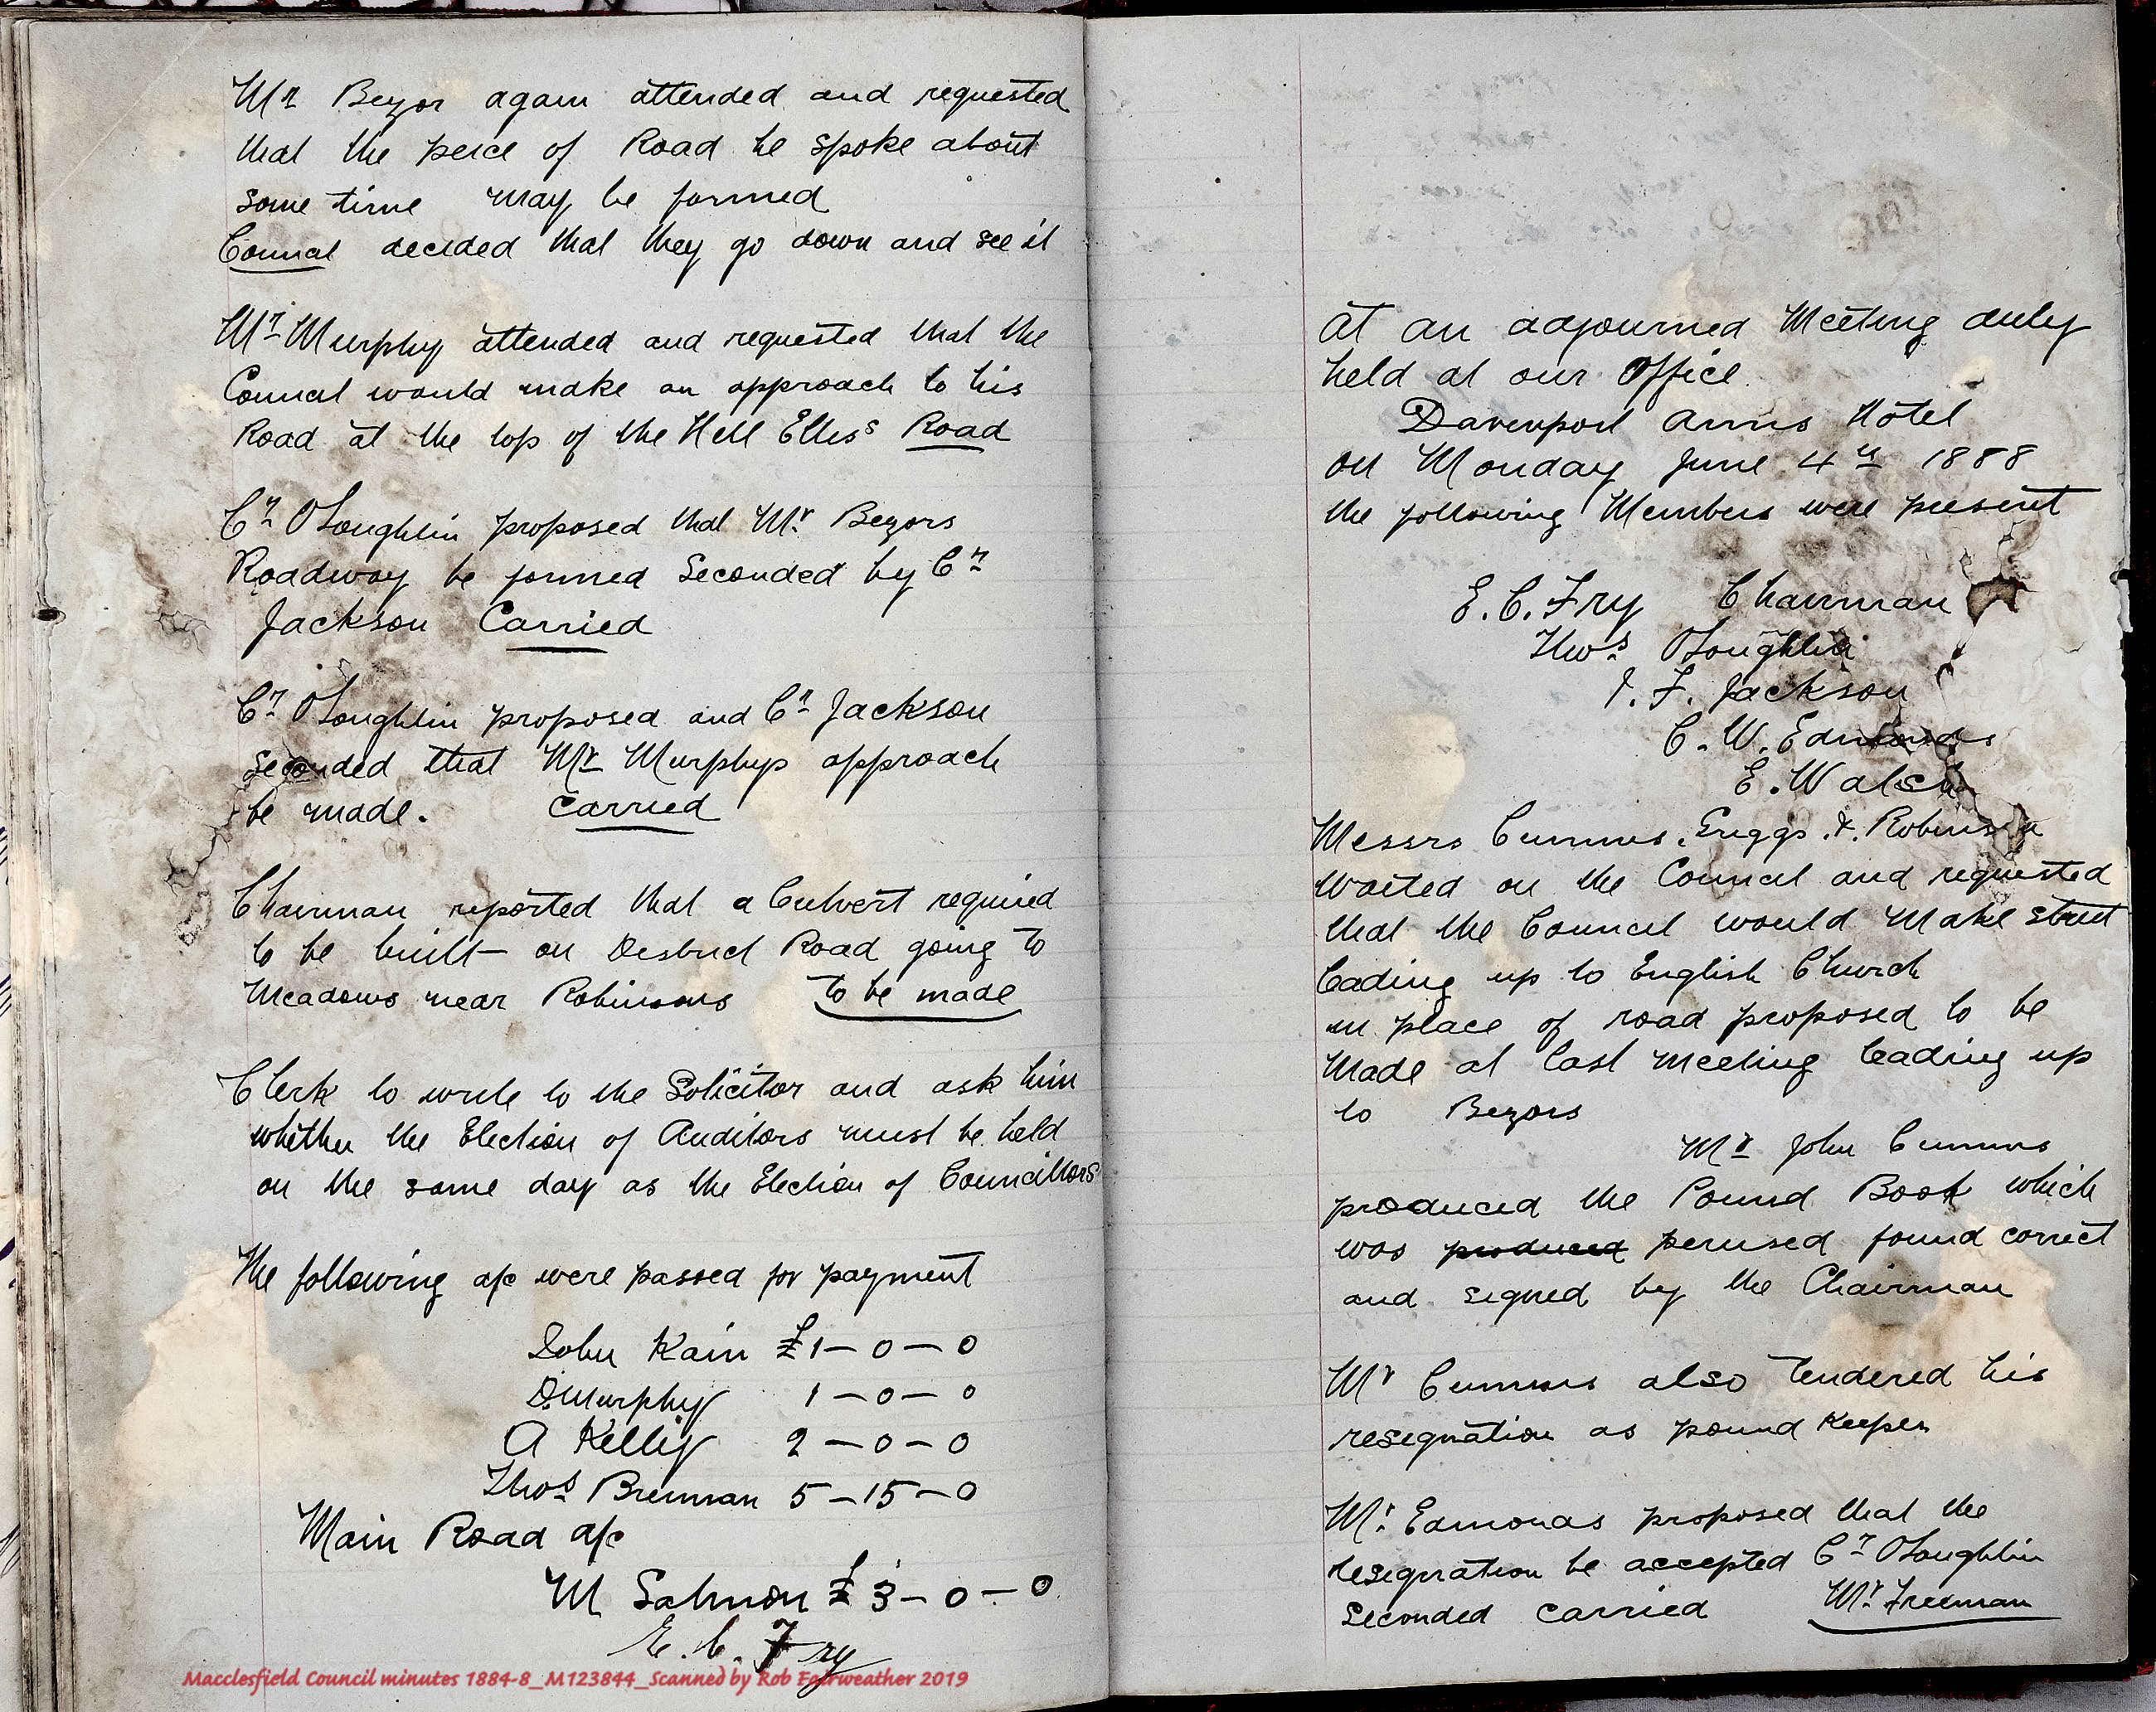 Mr Bezor again attended and requested
that the peice of Road he spoke about
some time may be formed
Council decided that they go down and see it
Mr Murphy attended and requested that the
Council would make an approach to his
Road at the top of the Hill Elliss Road
Cr OLoughlin proposed that Mr Bezors
Roadway be formed Seconded by Cr
Jackson Carried
Cr OLoughlin proposed and Cr Jackson
seconded that Mr Murphys approach
be made. Carried
Chairman reported that a Culvert required
to be built on District Road going to
Meadows near Robinsons to be made
Clerk to write to the Solicitor and ask him
whether the Election of Auditors must be held
on the same day as the Election of Councillors
The following a/c were passed for payment
John Kain £1-0-0
D. Murphy 1-0-0
A Kelly 2-0-0
Thos Brennan 5-15-0
Main Road a/c
M Salmon £3-0-0
E. C. Fry
Macclesfield Council minutes 1884-8_M123844_Scanned by Rob Fairweather 2019
At an adjourned Meeting duly
held at our Office
Davenport Arms Hotel
on Monday June 4th 1888
the following Members were present
E. C. Fry Chairman
Thos OLoughlin
J. F. Jackson
C. W. Edmonds
E. Walsh
Messrs Cummins, Griggs & Robinson
waited on the Council and requested
that the Council would make street
leading up to English Church
in place of road proposed to be
made at last meeting leading up
to Bezors
Mr John Cummins
produced the Pound Book which
was produced perused found correct
and signed by the Chairman
Mr Cummins also tendered his
resignation as pound Keeper
Mr Edmonds proposed that the
resignation be accepted Cr OLoughlin
seconded carried Mr Freeman